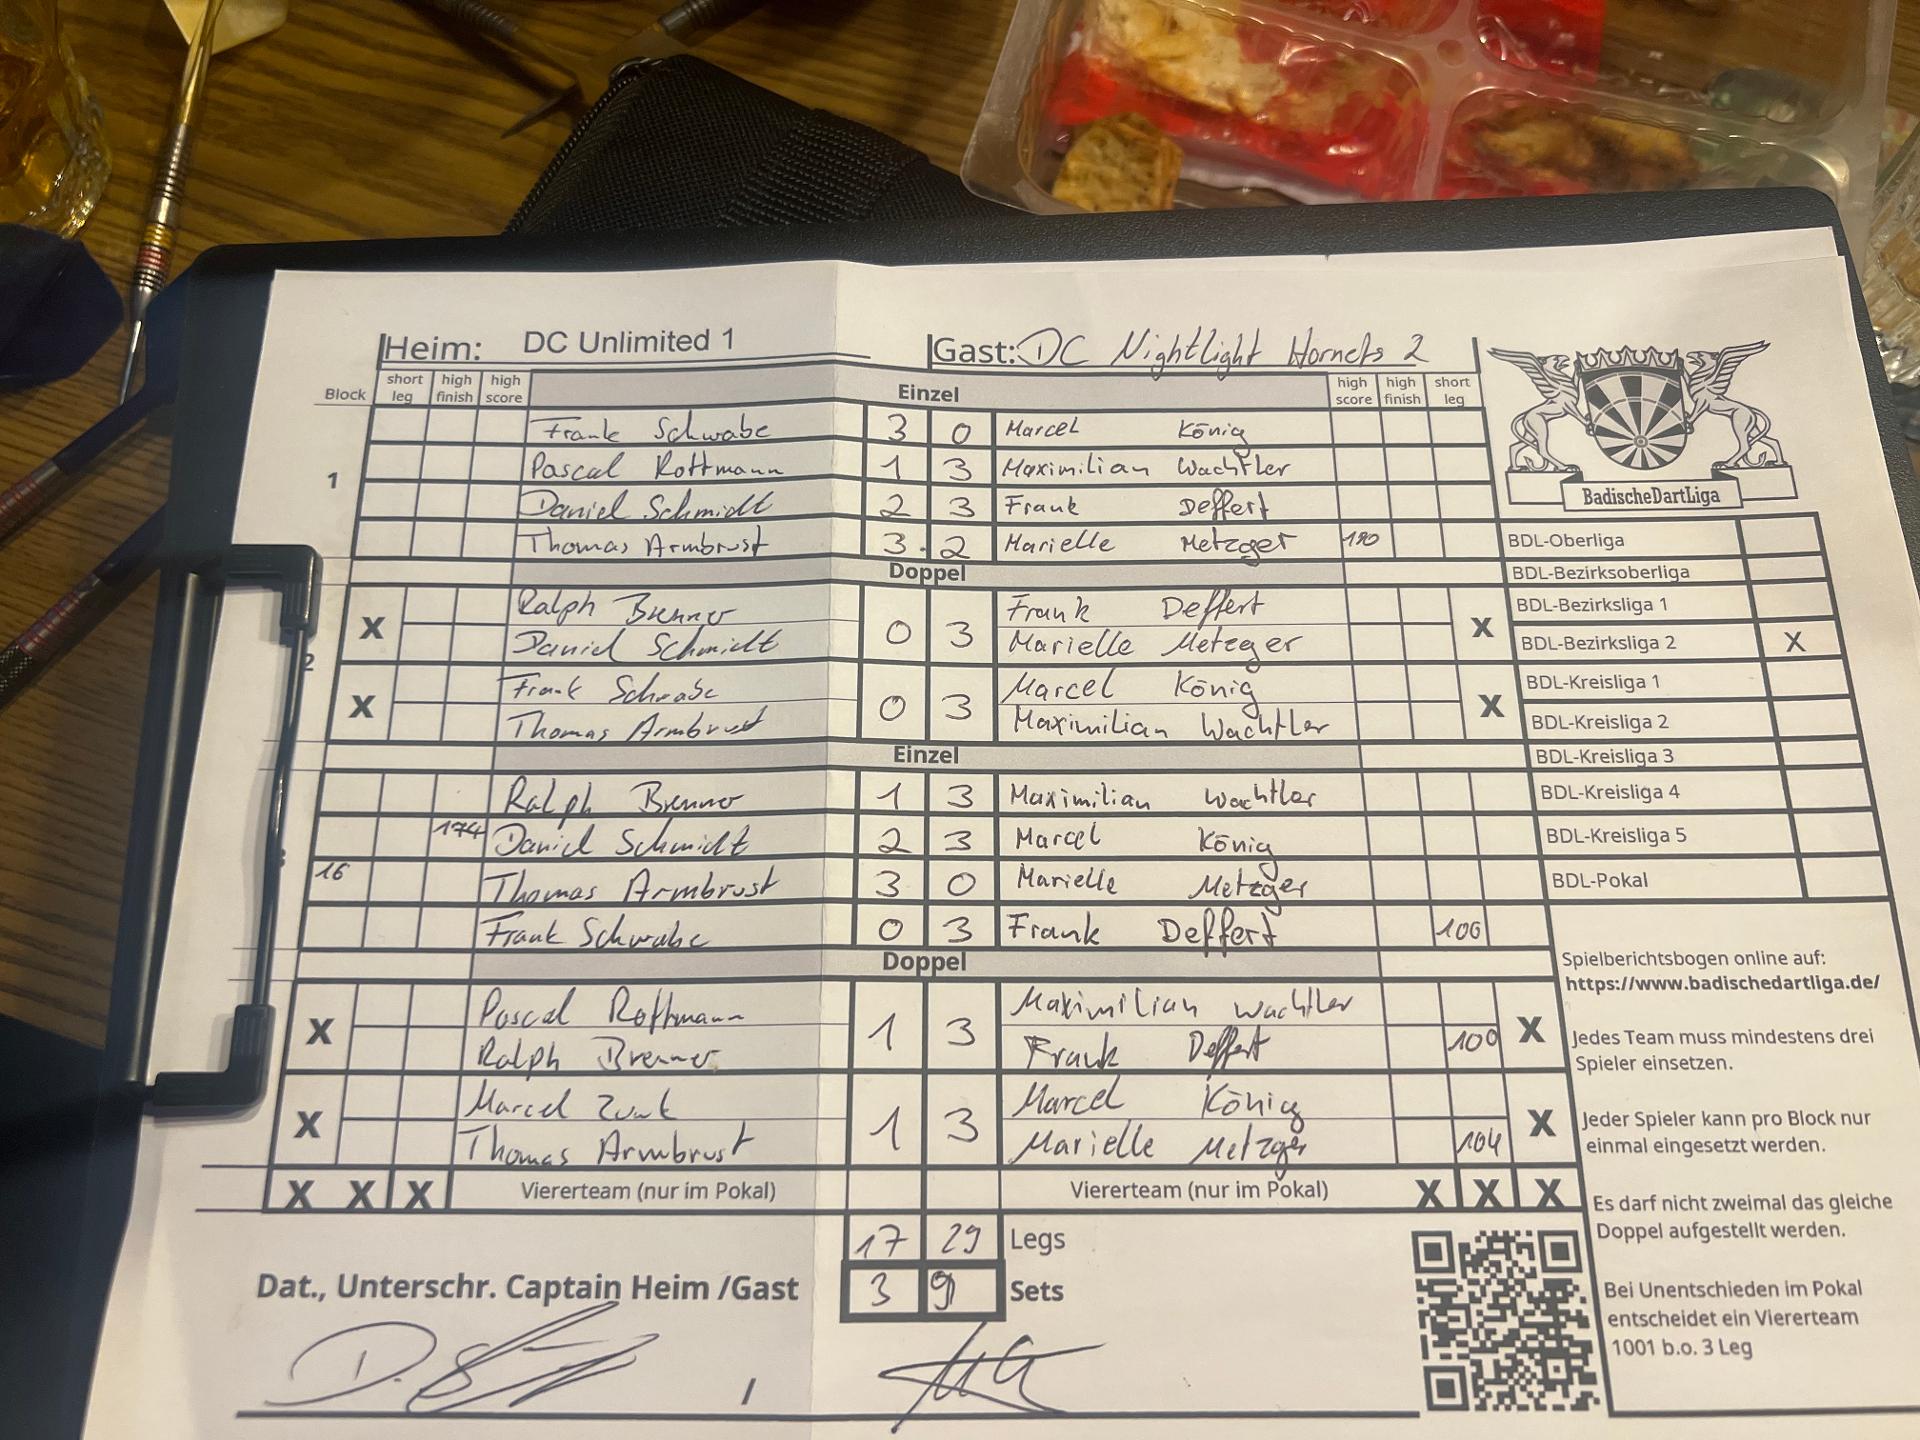 Heim: DC Unlimited 1 Gast: DC Nightlight Hornets 2
Block short leg high finish high score Einzel high score high finish short leg
Frank Schwabe 3 0 Marcel König
1 Pascal Rottmann 1 3 Maximilian Wachtler
Daniel Schmidt 2 3 Frank Deffert
Thomas Armbrust 3 2 Marielle Metzger 180
Doppel
Ralph Brenner Frank Deffert
X 0 3 X
Daniel Schmidt Marielle Metzger
2
Frank Schwabe Marcel König
X 0 3 X
Thomas Armbrust Maximilian Wachtler
Einzel
Ralph Brenner 1 3 Maximilian Wachtler
174 Daniel Schmidt 2 3 Marcel König
16 Thomas Armbrust 3 0 Marielle Metzger
Frank Schwabe 0 3 Frank Deffert 100
Doppel
Pascal Rottmann Maximilian Wachtler
X 1 3 X
Ralph Brenner Frank Deffert 100
Marcel Zunk Marcel König
X 1 3 X
Thomas Armbrust Marielle Metzger 104
X X X Viererteam (nur im Pokal) Viererteam (nur im Pokal) X X X
17 29 Legs
3 9 Sets
Dat., Unterschr. Captain Heim /Gast
/
BadischeDartLiga
BDL-Oberliga
BDL-Bezirksoberliga
BDL-Bezirksliga 1
BDL-Bezirksliga 2 X
BDL-Kreisliga 1
BDL-Kreisliga 2
BDL-Kreisliga 3
BDL-Kreisliga 4
BDL-Kreisliga 5
BDL-Pokal
Spielberichtsbogen online auf:
https://www.badischedartliga.de/
Jedes Team muss mindestens drei
Spieler einsetzen.
Jeder Spieler kann pro Block nur
einmal eingesetzt werden.
Es darf nicht zweimal das gleiche
Doppel aufgestellt werden.
Bei Unentschieden im Pokal
entscheidet ein Viererteam
1001 b.o. 3 Leg